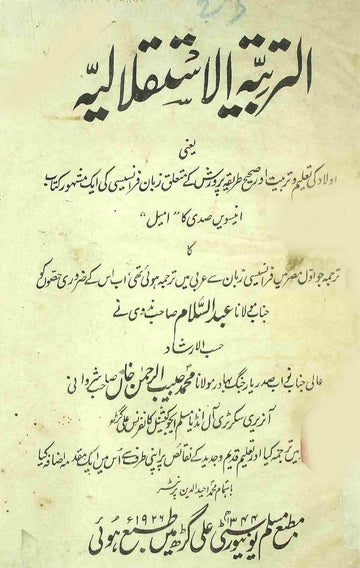 التربیۃ الاستقلالیہ
یعنی
اولاد کی تعلیم و تربیت اور صحیح طریقہ پرورش کے متعلق زبان فرانسیسی کی ایک مشہور کتاب
انیسویں صدی کا "امیل"
کا
ترجمہ جو اول مصر میں فرانسیسی زبان سے عربی میں ترجمہ ہوئی تھی اب اس کے ضروری حصوں کو
جناب مولانا عبد السلام صاحب ندوی نے
حسب الارشاد
عالی جناب نواب صدر یار جنگ بہادر مولانا محمد حبیب الرحمن خاں صاحب شروانی
آنریری سکرٹری آل انڈیا مسلم ایجوکیشنل کانفرنس علی گڑھ
میں ترجمہ کیا اور تعلیم قدیم و جدید کے نقائص پر اپنی طرف سے اس میں ایک مقدمہ اضافہ کیا
باہتمام محمد احید الدین پرنٹر
۱۳۴۴ھ ۱۹۲۶ء
مطبع مسلم یونیورسٹی علی گڑھ میں طبع ہوئی